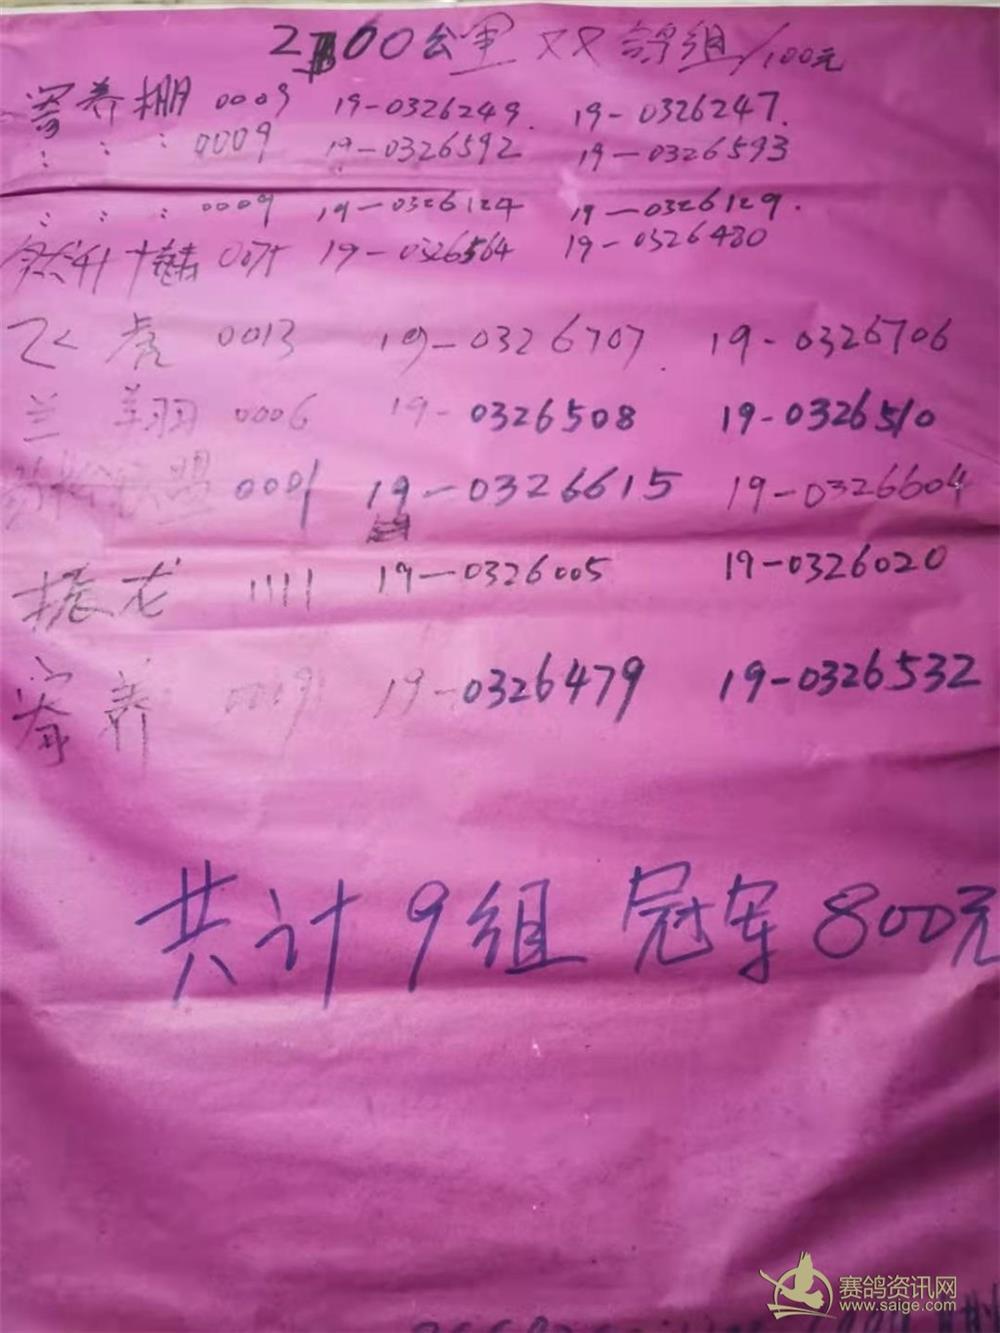 2100公里双鸽组/100元
寄养棚 0009 19-0326249 19-0326247.
: : : 0009 19-0326592 19-0326593
: : : 0009 19-0326124 19-0326129.
19-0326564 19-0326480
飞虎 0013 19-0326707 19-0326706
兰翔 0006 19-0326508 19-0326510
联盟 0001 19-0326615 19-0326604
振龙 1111 19-0326005 19-0326020
寄养 0019 19-0326479 19-0326532
共计9组 冠军800元
赛鸽资讯网
www.saige.com